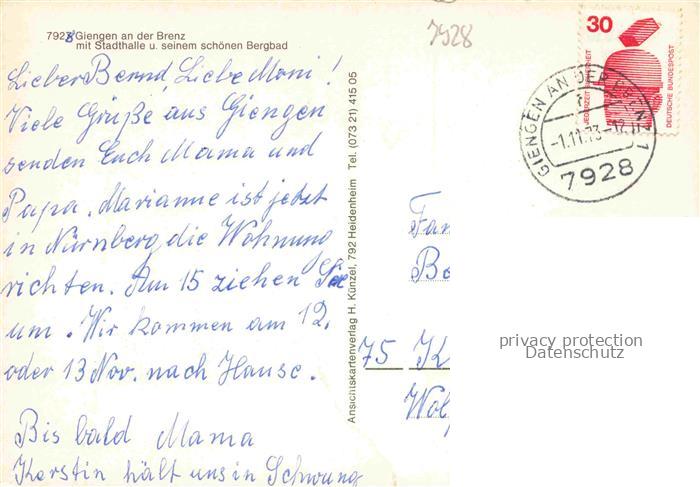 7928 Giengen an der Brenz
mit Stadthalle u. seinem schönen Bergbad
Lieber Bernd, Liebe Moni!
Viele Grüße aus Giengen
senden Euch Mama und
Papa. Marianne ist jetzt
in Nürnberg die Wohnung
richten. Am 15 ziehen Sie
um. Wir kommen am 12.
oder 13 Nov. nach Hause.
Bis bald Mama
Kerstin hält uns in Schwung
Ansichtskartenverlag H. Künzel, 792 Heidenheim Tel. (073 21) 415 05
7928
30
JEDERZEIT SICHERHEIT
DEUTSCHE BUNDESPOST
GIENGEN AN DER BRENZ 1
-1.11.73-12
7928
Fam
Be
75 K
Wol
privacy protection
Datenschutz